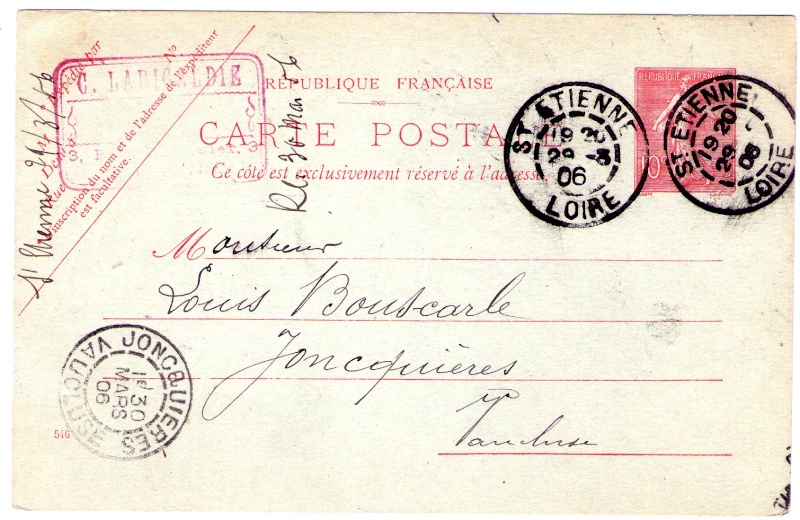 Expédié par
Nº
inscription du nom et de l'adresse de l'expéditeur
est facultative.
C.
RÉPUBLIQUE FRANÇAISE
CARTE POSTALE
Ce côté est exclusivement réservé à l'adresse.
RÉPUBLIQUE FRANÇ
10
ST ETIENNE
19 20
29 -3
06
LOIRE
ST ETIENNE
19 20
29
06
LOIRE
St Etienne 29/3/06
30 Mars 06
Monsieur
Louis Bouscarle
Joncquières
Vaucluse
JONCQUIERES
30
MARS
06
VAUCLUSE
546